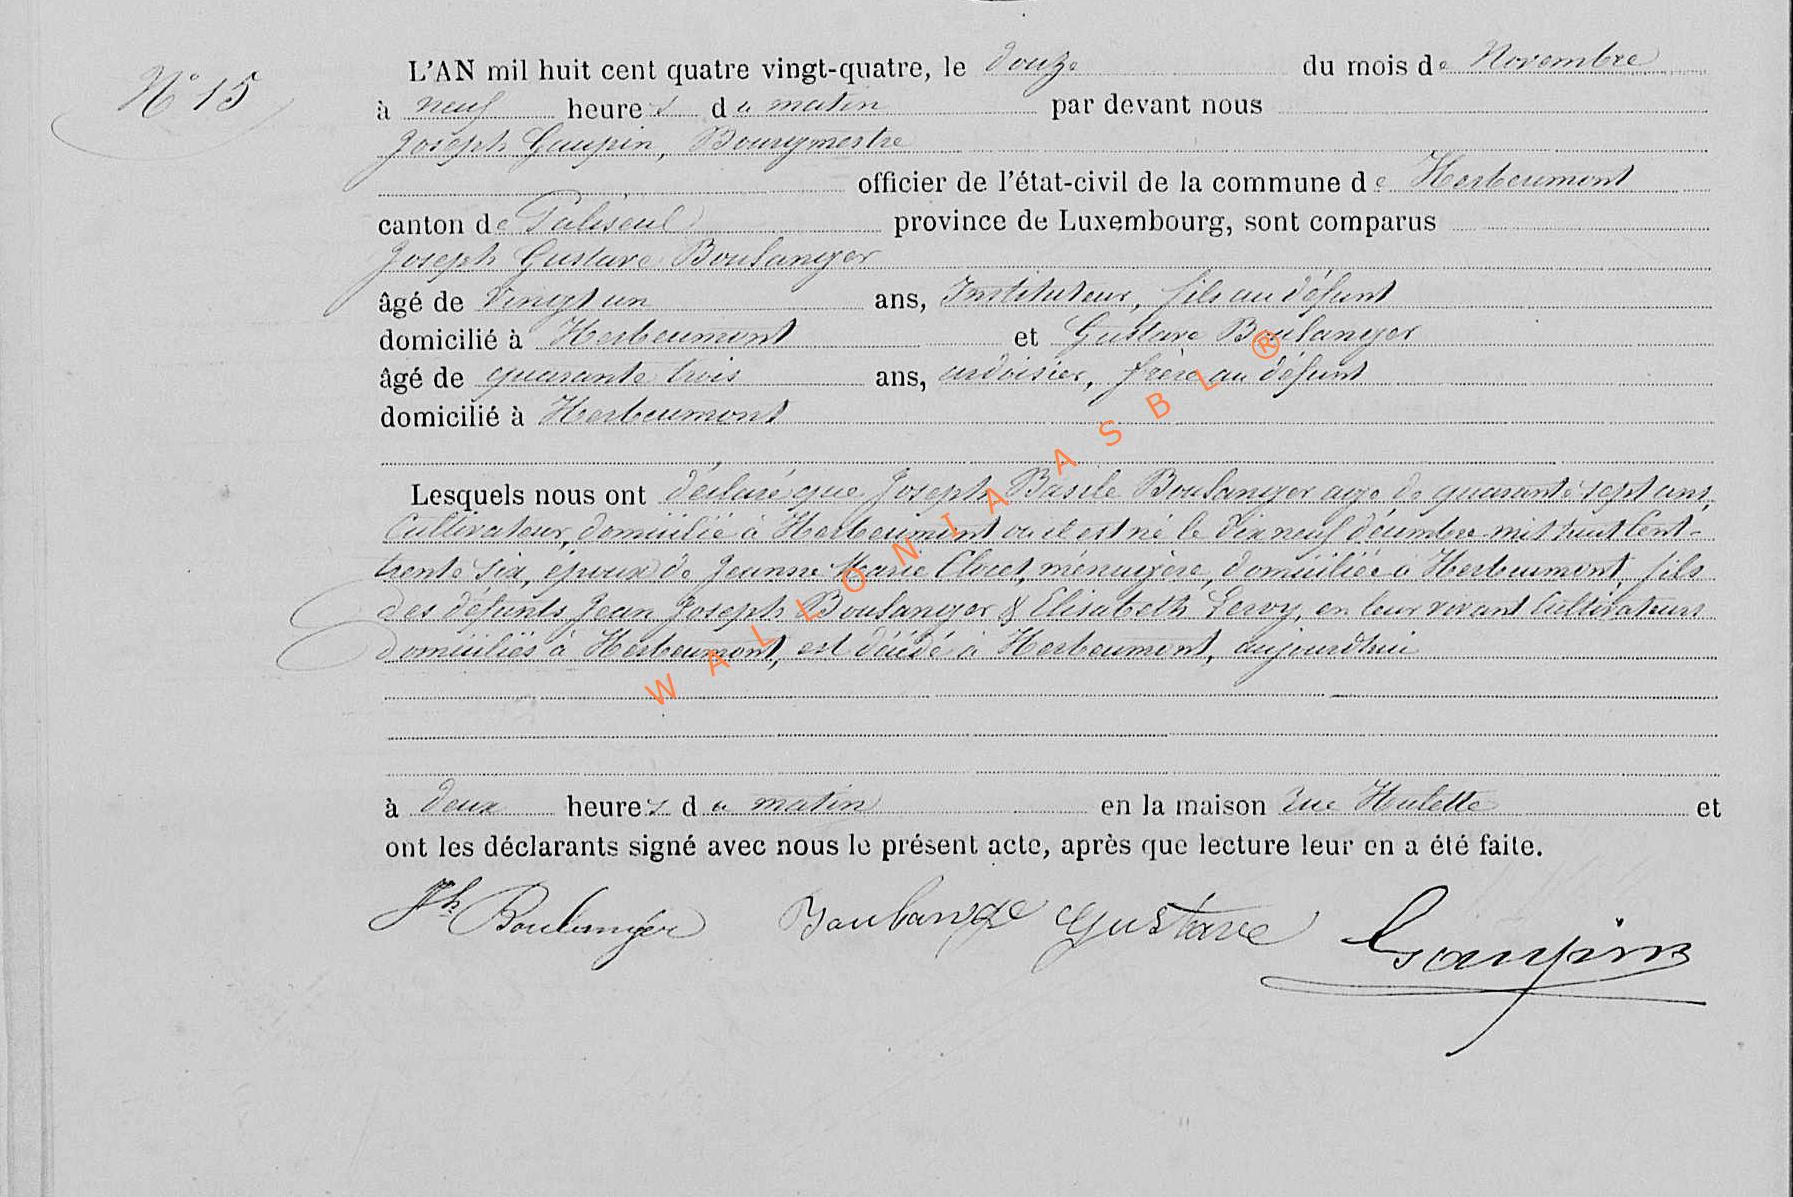 L'AN mil huit cent quatre vingt-quatre, le douze du mois de Novembre
N° 15
à neuf heures du matin par devant nous
Joseph Gaupin, Bourgmestre
officier de l'état-civil de la commune de Herbeumont
canton de Paliseul province de Luxembourg, sont comparus
Joseph Gustave Boulanger
âgé de Vingt un ans, Instituteur, fils au défunt
domicilié à Herbeumont et Gustave Boulanger
âgé de quarante trois ans, ardoisier, frère au défunt
domicilié à Herbeumont
Lesquels nous ont déclaré que Joseph Basile Boulanger age de quarante sept ans,
Cultivateur, domicilié à Herbeumont ou il est né le dix neuf décembre mil huit Cent
trente six, époux de Jeanne Marie Clocet, ménagère, domiciliée à Herbeumont, fils
des défunts Jean Joseph Boulanger & Elisabeth Leroy, en leur vivant Cultivateurs
domiciliés à Herbeumont, est décédé à Herbeumont, aujourdhui
à deux heures du matin en la maison rue Hulette et
ont les déclarants signé avec nous le présent acte, après que lecture leur en a été faite.
Jh. Boulanger Boulange Gustave Gaupin
WALLONIA ASBL ®